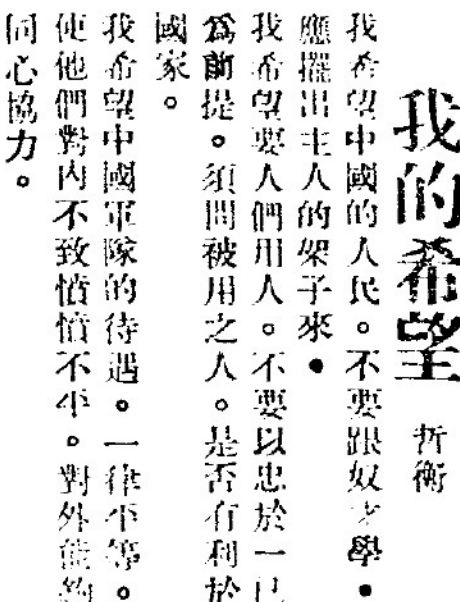 我的希望
哲衡
我希望中國的人民。不要跟奴才學•
應擺出主人的架子來•
我希望要人們用人。不要以忠於一己
爲前提。須問被用之人。是否有利於
國家。
我希望中國軍隊的待遇。一律平等。
使他們對內不致憤憤不平。對外能夠
同心協力。